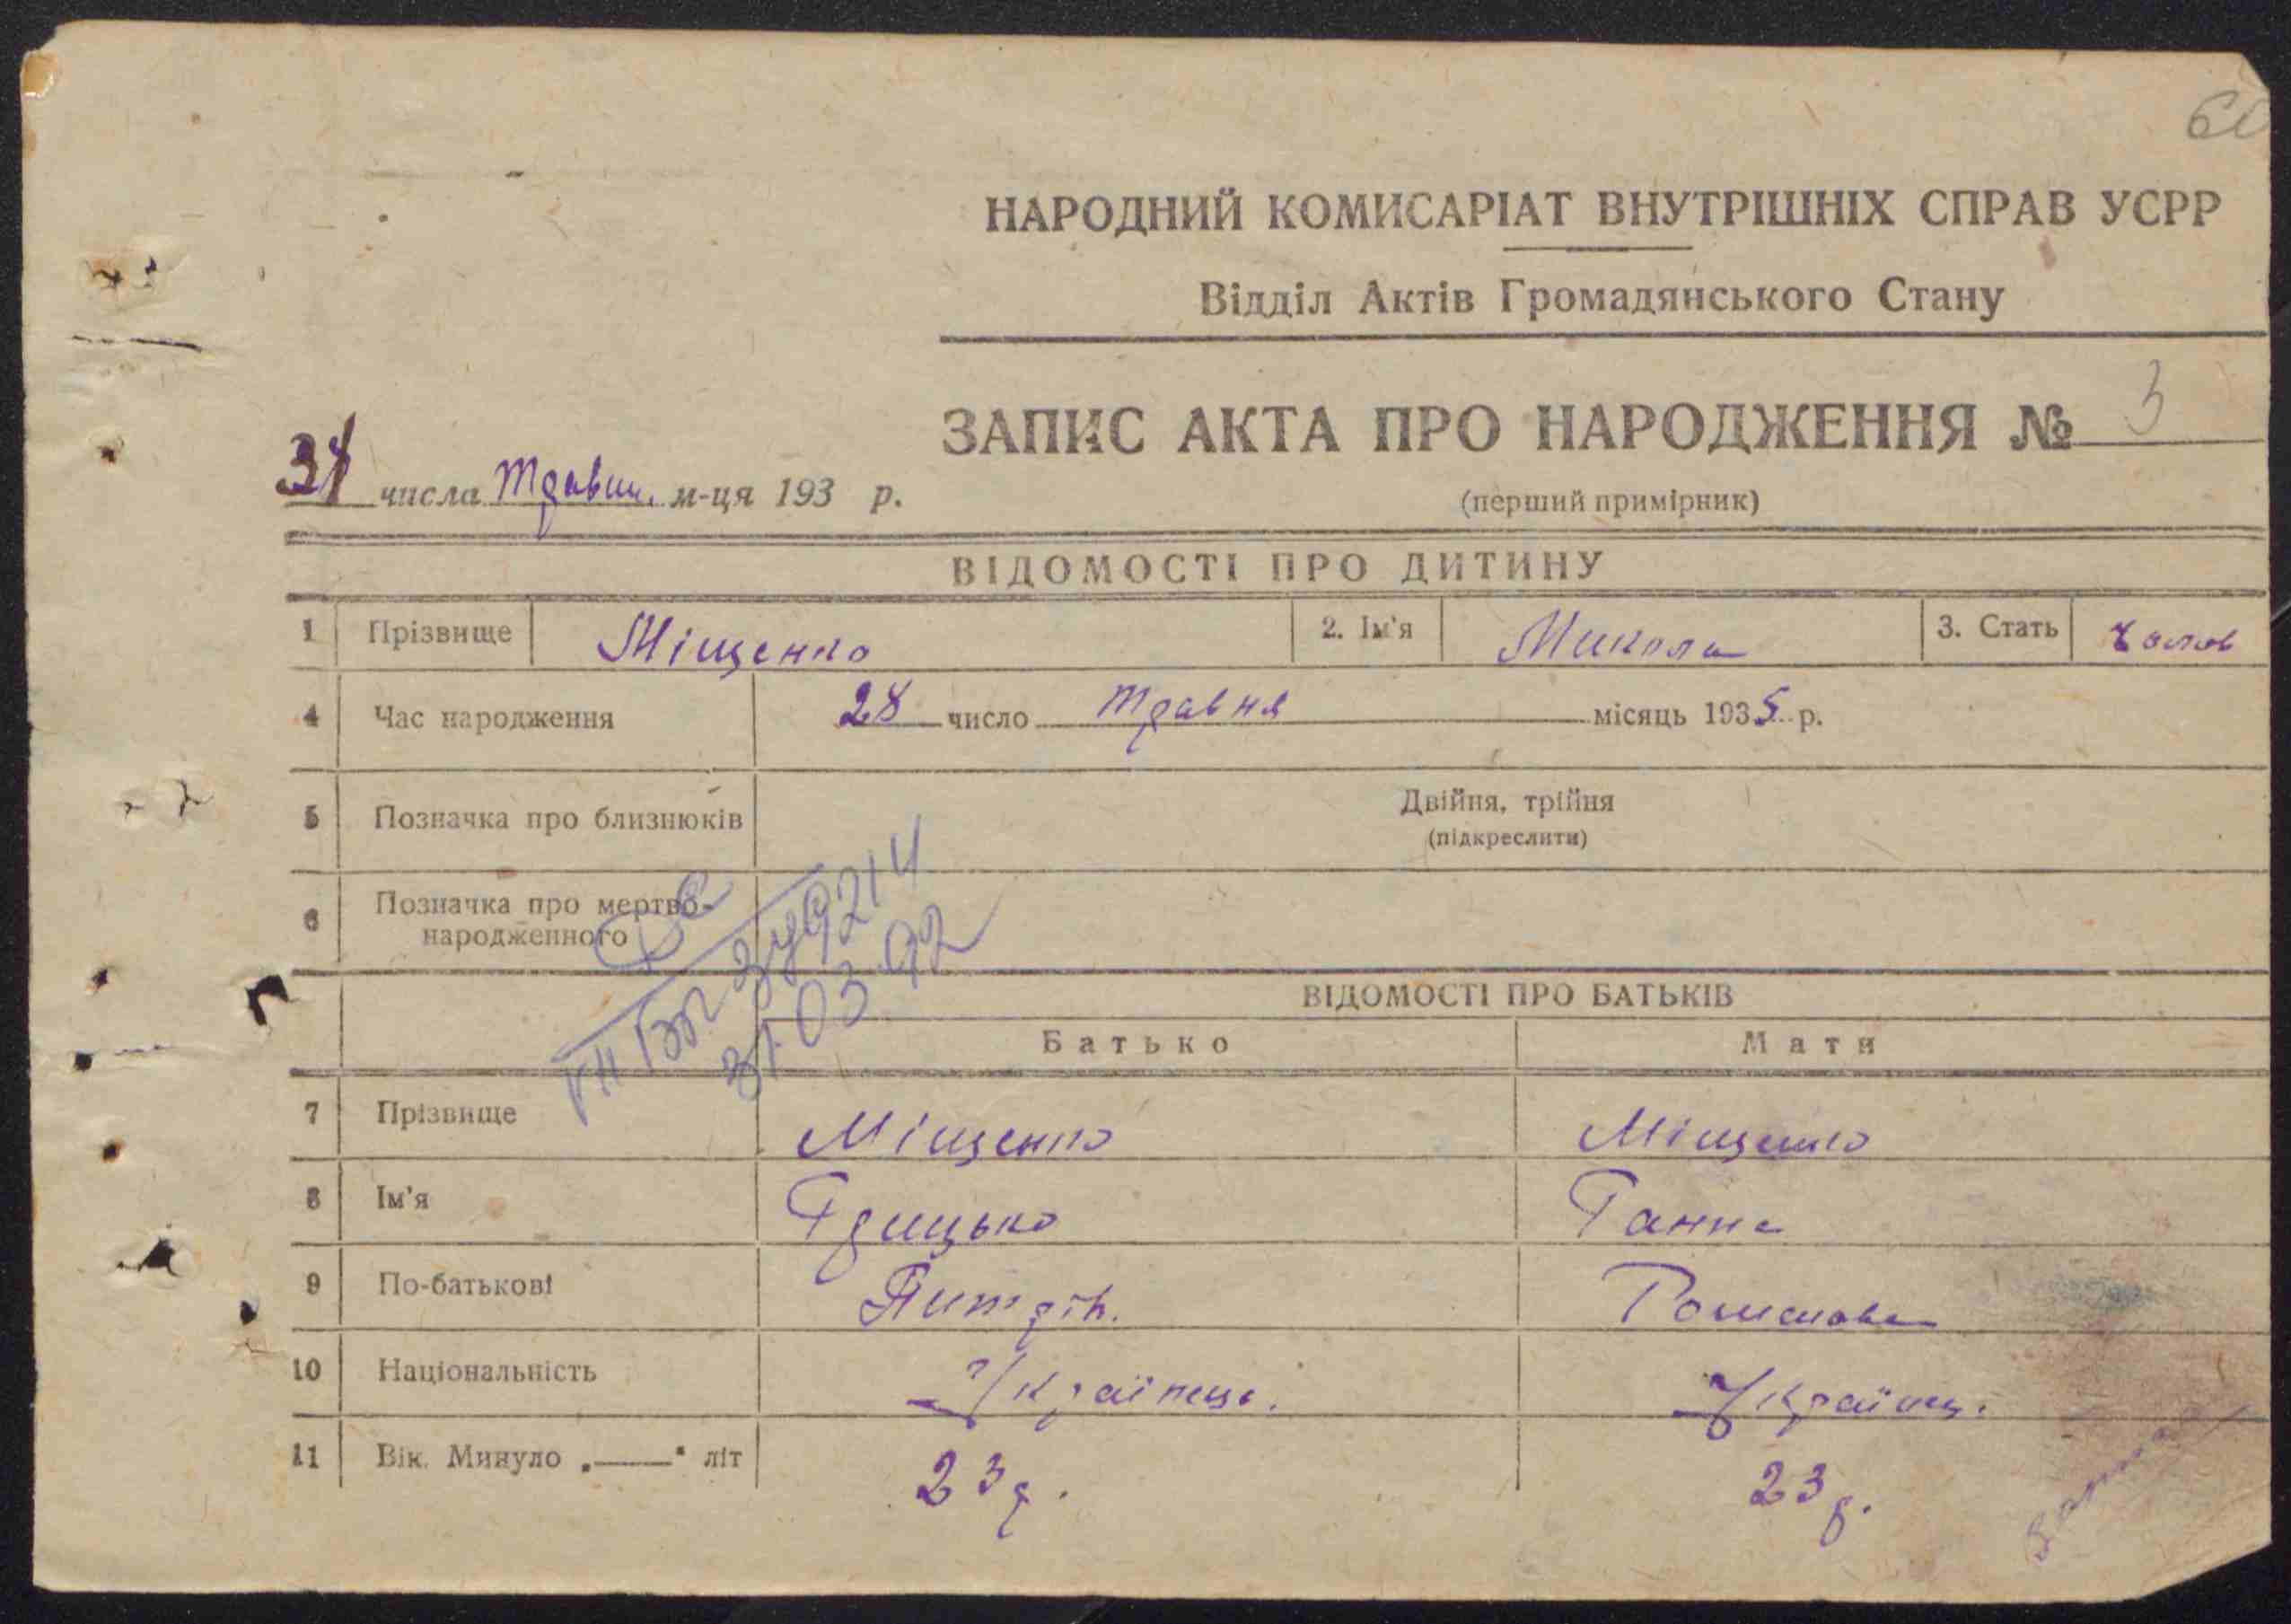 НАРОДНИЙ КОМИСАРІАТ ВНУТРІШНІХ СПРАВ УСРР
Відділ Актів Громадянського Стану
ЗАПИС АКТА ПРО НАРОДЖЕННЯ № 3
31 числа Травня м-ця 193 р.
(перший примірник)
ВІДОМОСТІ ПРО ДИТИНУ
1 Прізвище Міщенко 2. Ім'я Микола 3. Стать Чолов
4 Час народження 28 число травня місяць 1935 р.
5 Позначка про близнюків Двійня, трійня
(підкреслити)
6 Позначка про мертво-
народженного
31.03.92
ВІДОМОСТІ ПРО БАТЬКІВ
Батько Мати
7 Прізвище Міщенко Міщенко
8 Ім'я Грицько Ганна
9 По-батькові
10 Національність Українець. Українц.
11 Вік. Минуло „—“ літ 23 р. 23 р.